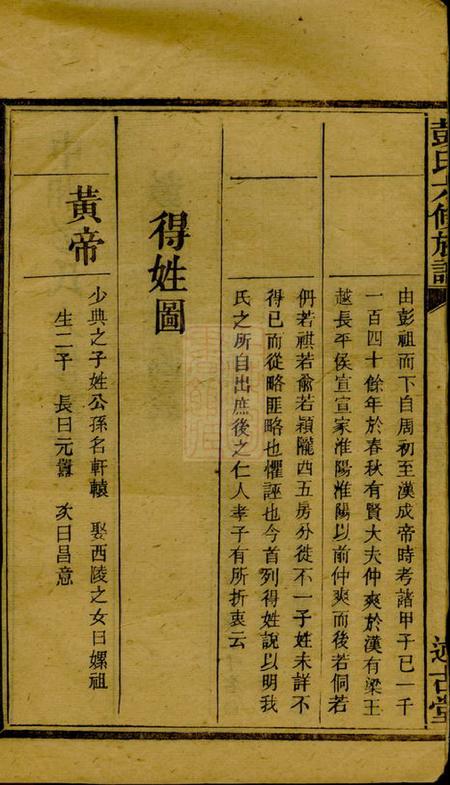 彭氏六修族譜
述古堂
由彭祖而下自周初至漢成帝時考諸甲子已一千
一百四十餘年於春秋有賢大夫仲爽於漢有梁王
越長平侯宣宣家淮陽淮陽以前仲爽而後若侗若
侢若祺若兪若穎隴西五房分徙不一子姓未詳不
得已而從略匪略也懼誣也今首列得姓說以明我
氏之所自出庶後之仁人孝子有所折衷云
得姓圖
黃帝
少典之子姓公孫名軒轅 娶西陵之女曰嫘祖
生二子 長曰元囂 次曰昌意